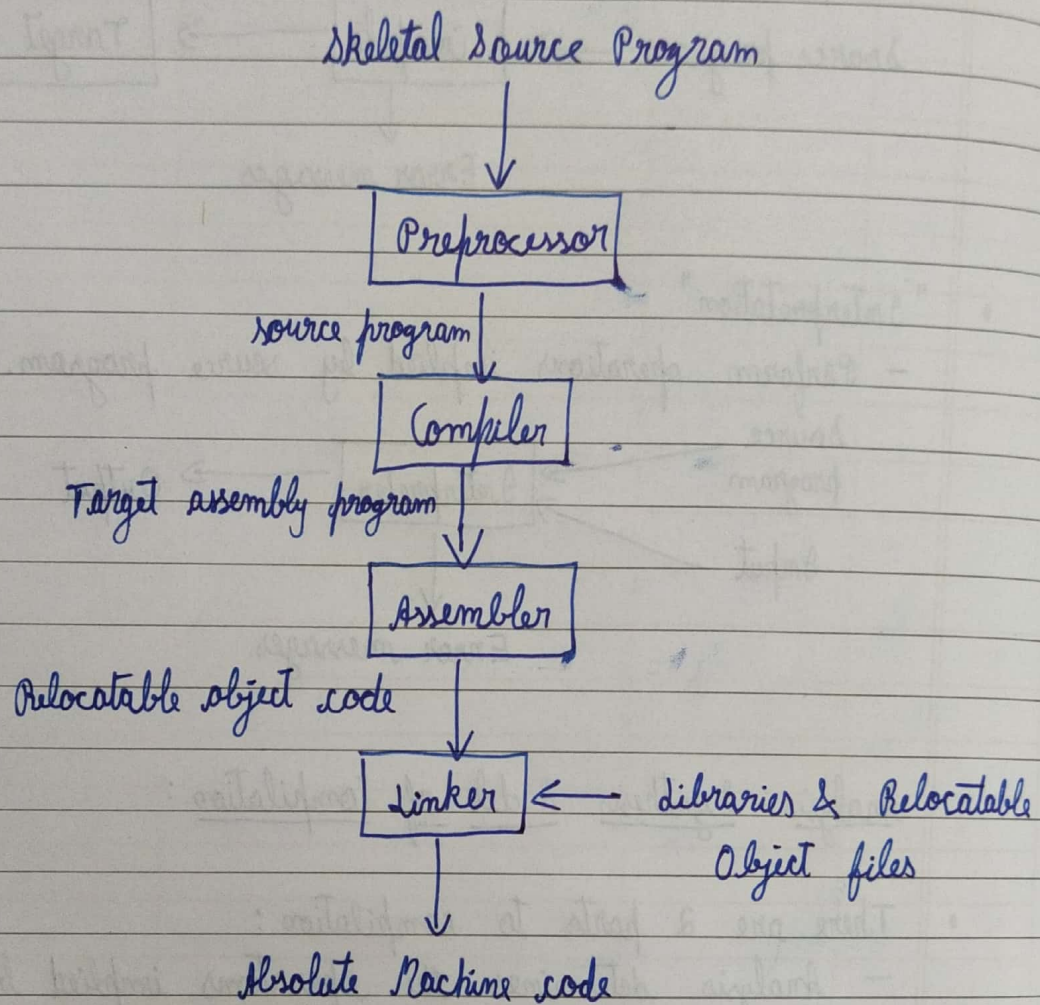 Skeletal Source Program
Preprocessor
source program
Compiler
Target assembly program
Assembler
Relocatable object code
Linker
Libraries & Relocatable
Object files
Absolute Machine code